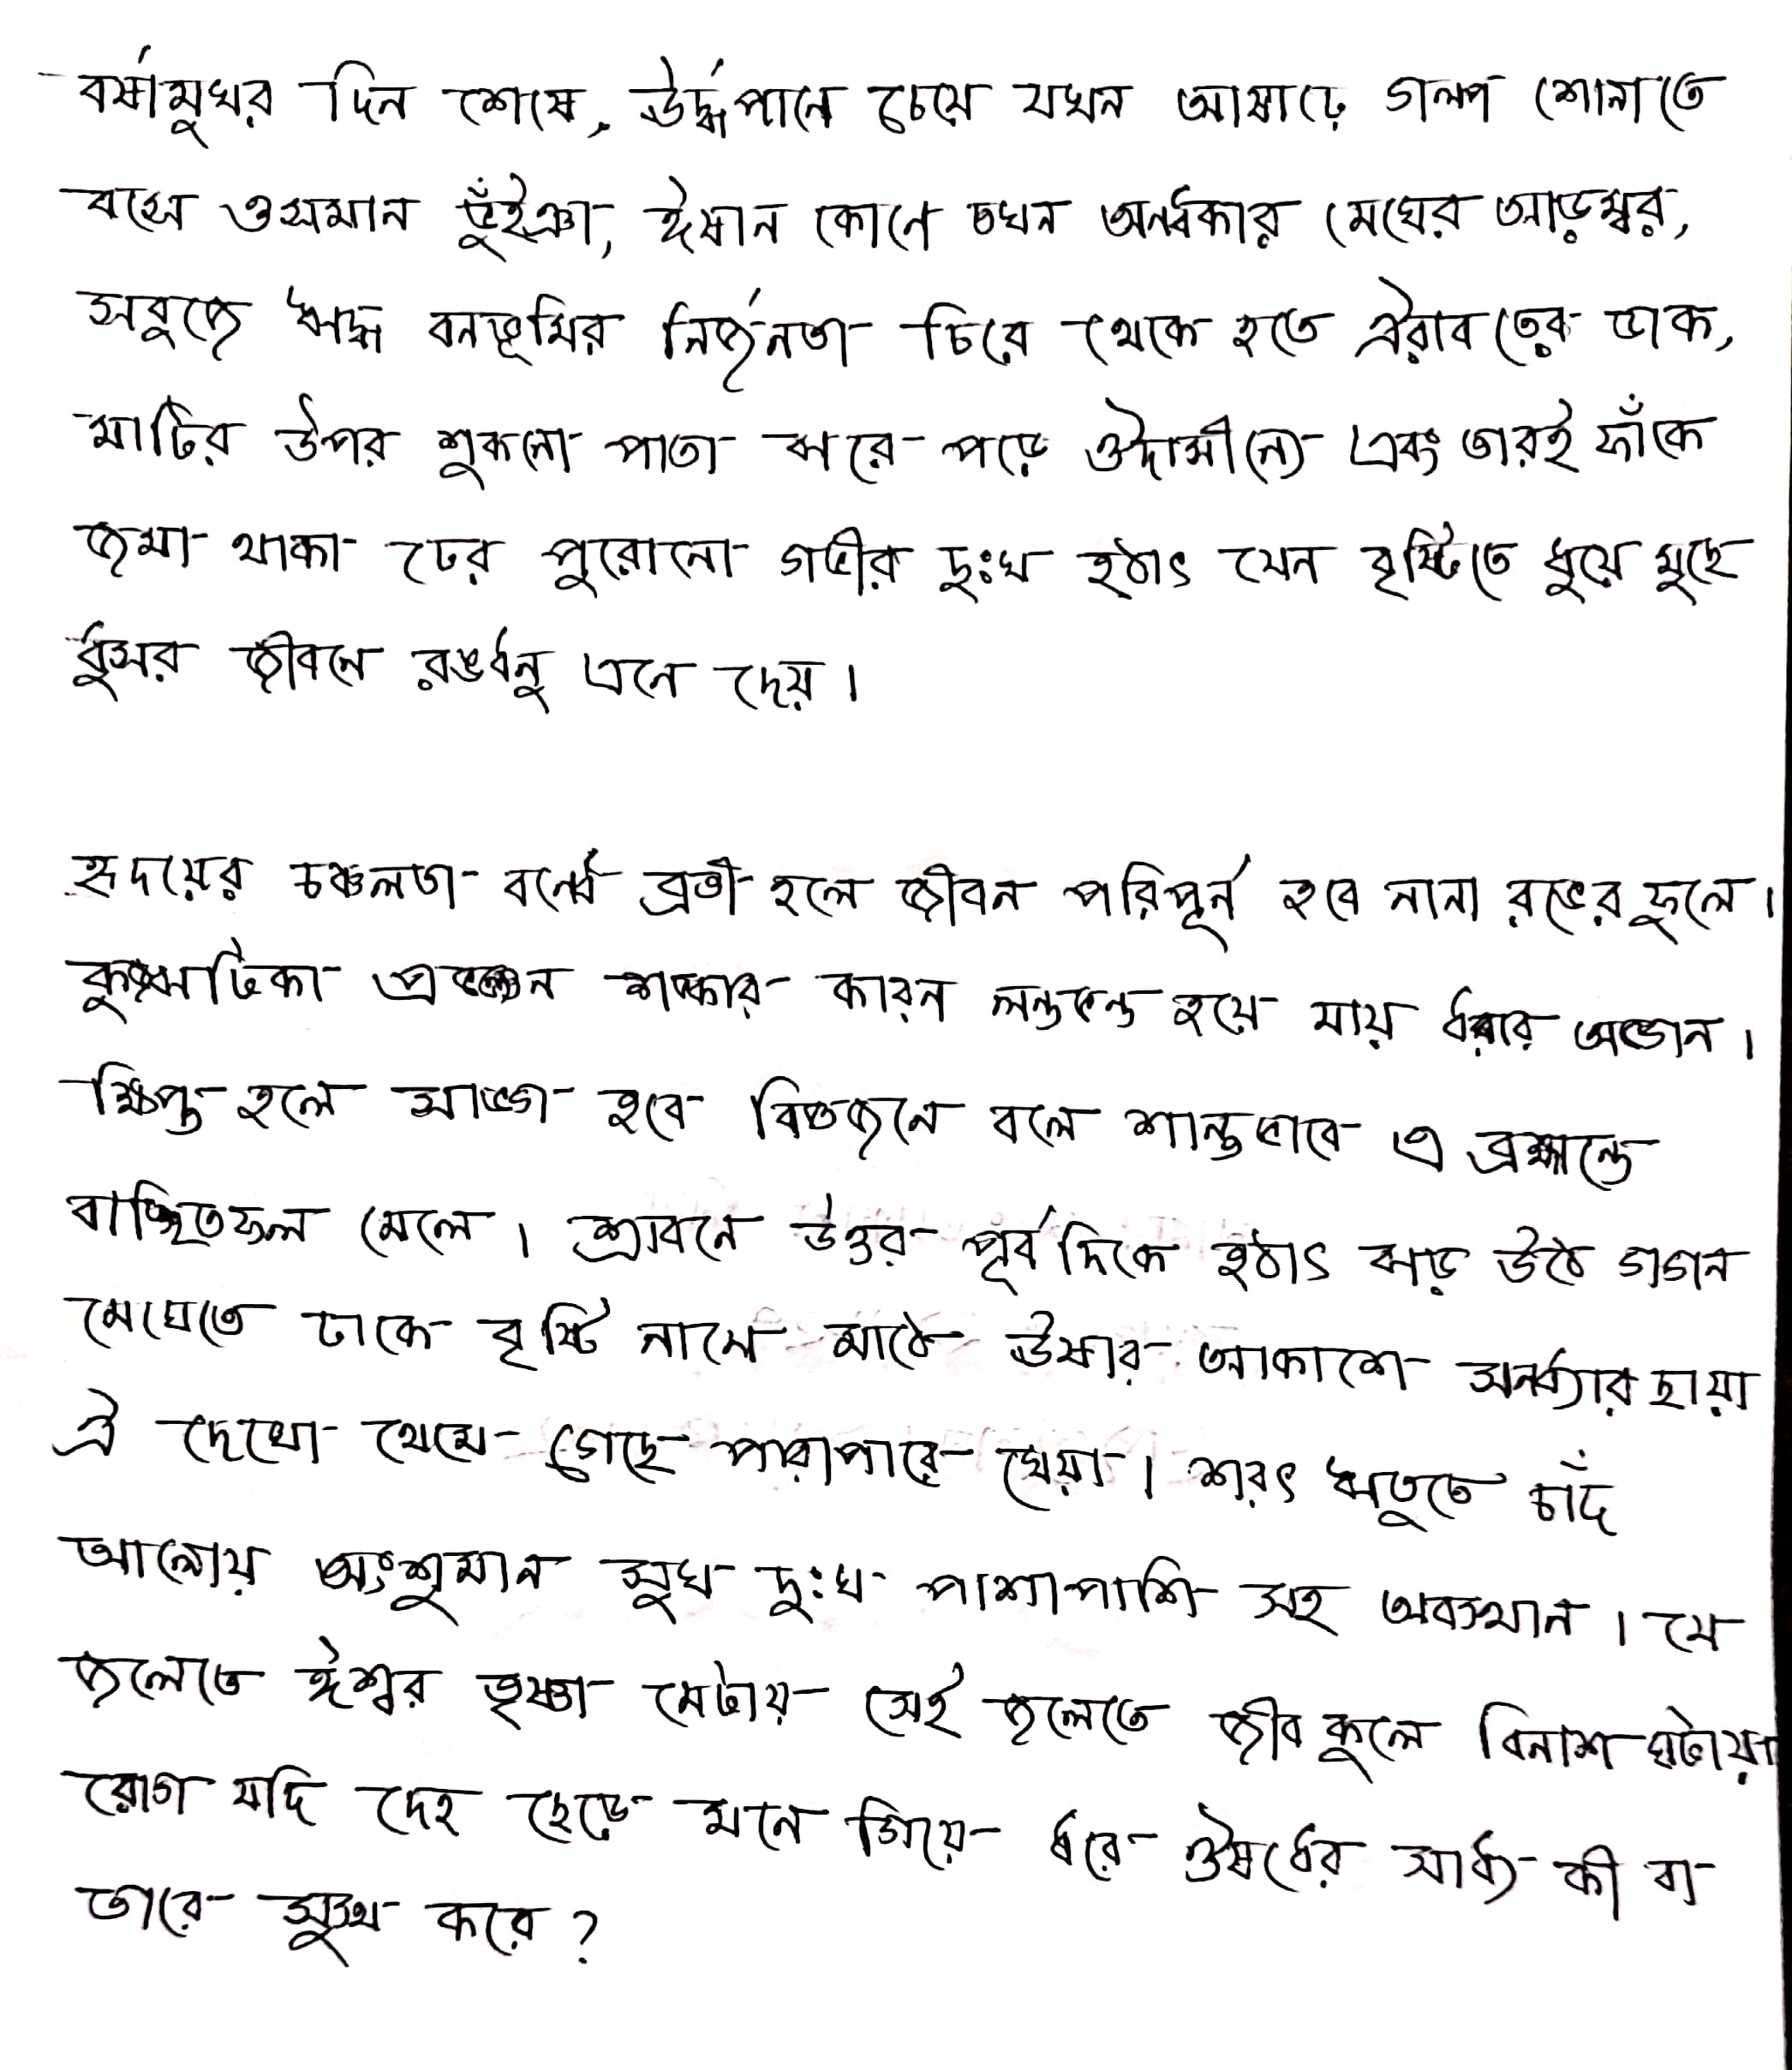 বর্ষামুখর দিন শেষে, ঊর্দ্ধপানে চেয়ে যখন আষাঢ়ে গল্প শোনাতে
বসে ওসমান ভুঁইঞা, ঈষান কোণে তখন অন্ধকার মেঘের আড়ম্বর,
সবুজে ঋদ্ধ বনভূমির নির্জনতা চিরে থেকে হতে ঐরাবতের ডাক,
মাটির উপর শুকনো পাতা ঝরে পড়ে ঔদাসীন্যে এবং তারই ফাঁকে
জমা থাকা ঢের পুরোনো গভীর দুঃখ হঠাৎ যেন বৃষ্টিতে ধুয়ে মুছে
ধুসর জীবনে রঙধনু এনে দেয়।
হৃদয়ের চঞ্চলতা বন্ধে ব্রতী হলে জীবন পরিপূর্ন হবে নানা রঙের ফুলে।
কুজ্ঝটিকা প্রভঞ্জন শঙ্কার কারন লন্ডভন্ড হয়ে যায় ধরার অঙ্গন।
ক্ষিপ্ত হলে সাঙ্গ হবে বিজ্ঞজনে বলে শান্তভাবে এ ব্রহ্মান্ডে
বাঞ্ছিতফল মেলে। শ্রাবনে উত্তর পূর্বদিকে হঠাৎ ঝড় উঠে গগন
মেঘেতে ঢাকে বৃষ্টি নামে মাঠে ঊষার আকাশে সন্ধ্যার ছায়া
ঐ দেখো থেমে গেছে পারাপারে খেয়া। শরৎ ঋতুতে চাঁদ
আলোয় অংশুমান সুখ দুঃখ পাশাপাশি সহ অবস্থান। যে
জলেতে ঈশ্বর তৃষ্ণা মেটায় সেই জলেতে জীবকুলে বিনাশ ঘটায়।
রোগ যদি দেহ ছেড়ে মনে গিয়ে ধরে ঔষধের সাধ্য কী বা
তারে সুস্থ করে?